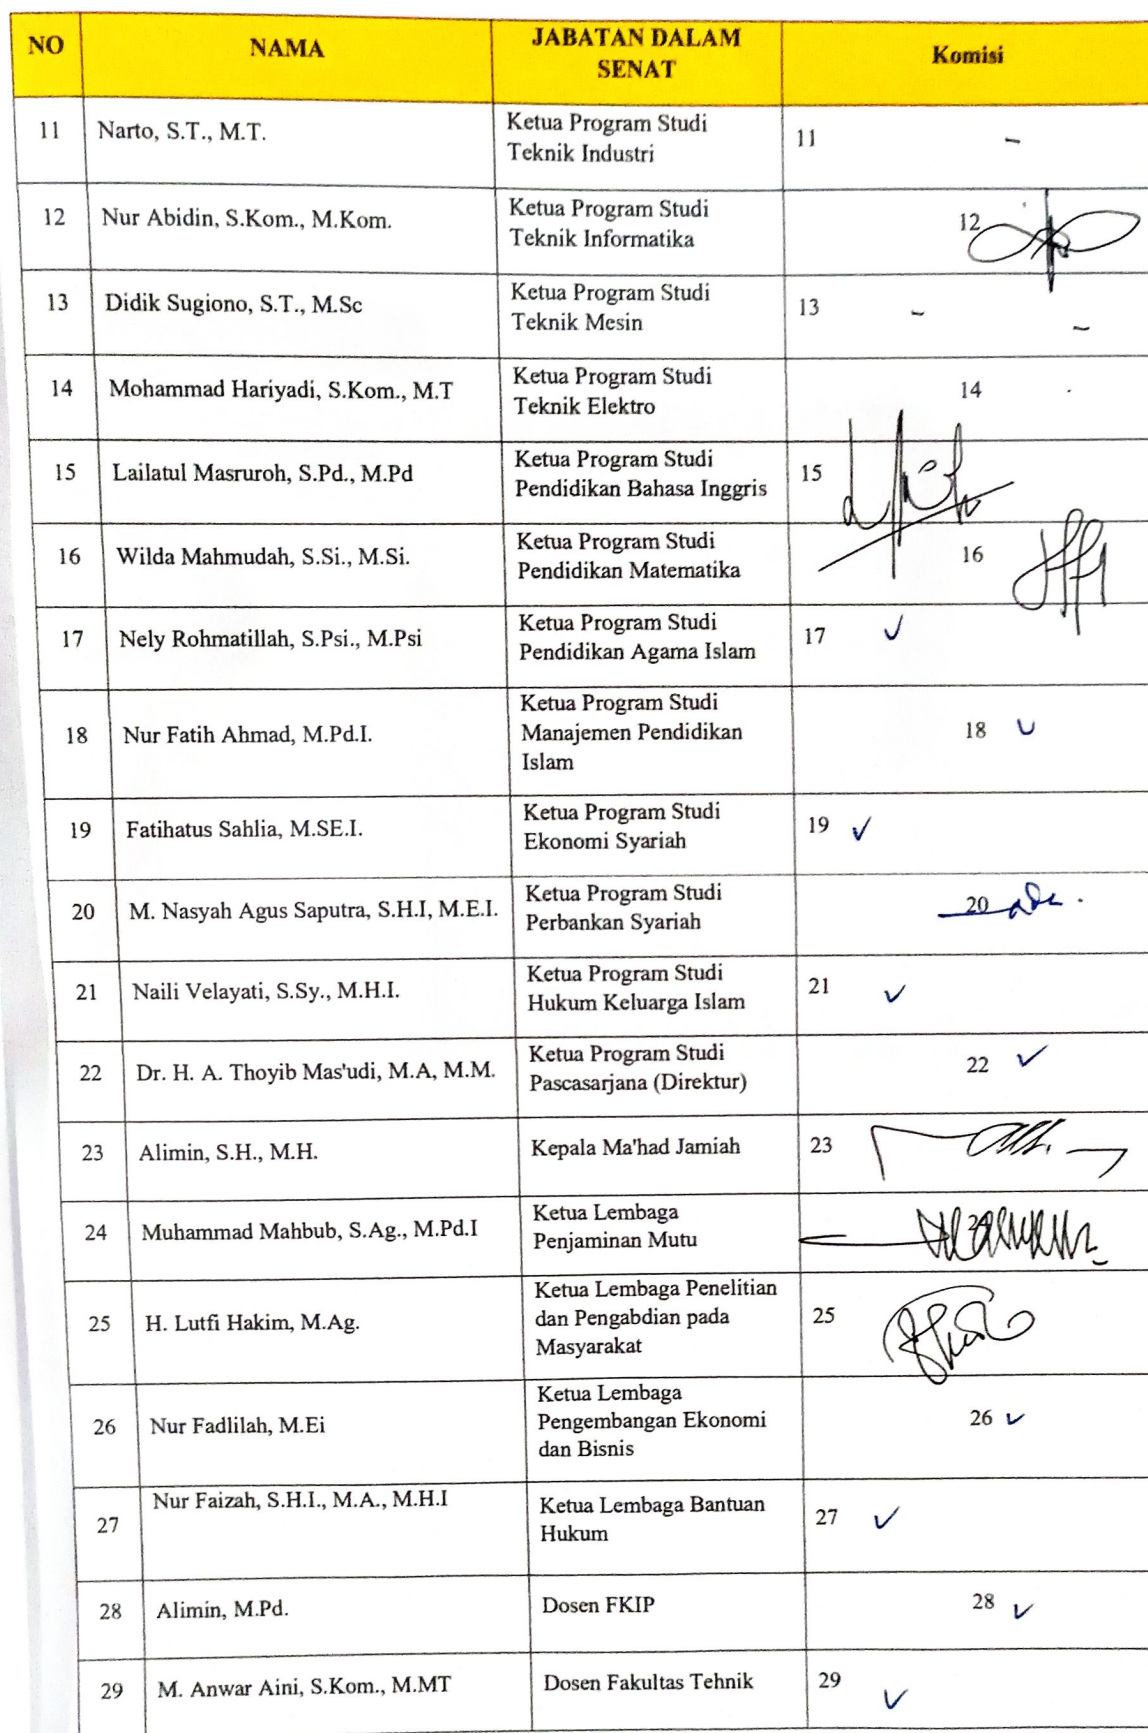 NO NAMA JABATAN DALAM SENAT Komisi
11 Narto, S.T., M.T. Ketua Program Studi 11 -
Teknik Industri
12 Nur Abidin, S.Kom., M.Kom. Ketua Program Studi 12
Teknik Informatika
13 Didik Sugiono, S.T., M.Sc Ketua Program Studi 13 - -
Teknik Mesin
14 Mohammad Hariyadi, S.Kom., M.T Ketua Program Studi 14
Teknik Elektro
15 Lailatul Masruroh, S.Pd., M.Pd Ketua Program Studi 15
Pendidikan Bahasa Inggris
16 Wilda Mahmudah, S.Si., M.Si. Ketua Program Studi 16
Pendidikan Matematika
17 Nely Rohmatillah, S.Psi., M.Psi Ketua Program Studi 17 ✓
Pendidikan Agama Islam
18 Nur Fatih Ahmad, M.Pd.I. Ketua Program Studi 18 ✓
Manajemen Pendidikan
Islam
19 Fatihatus Sahlia, M.SE.I. Ketua Program Studi 19 ✓
Ekonomi Syariah
20 M. Nasyah Agus Saputra, S.H.I, M.E.I. Ketua Program Studi 20
Perbankan Syariah
21 Naili Velayati, S.Sy., M.H.I. Ketua Program Studi 21 ✓
Hukum Keluarga Islam
22 Dr. H. A. Thoyib Mas'udi, M.A, M.M. Ketua Program Studi 22 ✓
Pascasarjana (Direktur)
23 Alimin, S.H., M.H. Kepala Ma'had Jamiah 23
24 Muhammad Mahbub, S.Ag., M.Pd.I Ketua Lembaga
Penjaminan Mutu
25 H. Lutfi Hakim, M.Ag. Ketua Lembaga Penelitian 25
dan Pengabdian pada
Masyarakat
26 Nur Fadlilah, M.Ei Ketua Lembaga 26 ✓
Pengembangan Ekonomi
dan Bisnis
27 Nur Faizah, S.H.I., M.A., M.H.I Ketua Lembaga Bantuan 27 ✓
Hukum
28 Alimin, M.Pd. Dosen FKIP 28 ✓
29 M. Anwar Aini, S.Kom., M.MT Dosen Fakultas Tehnik 29 ✓